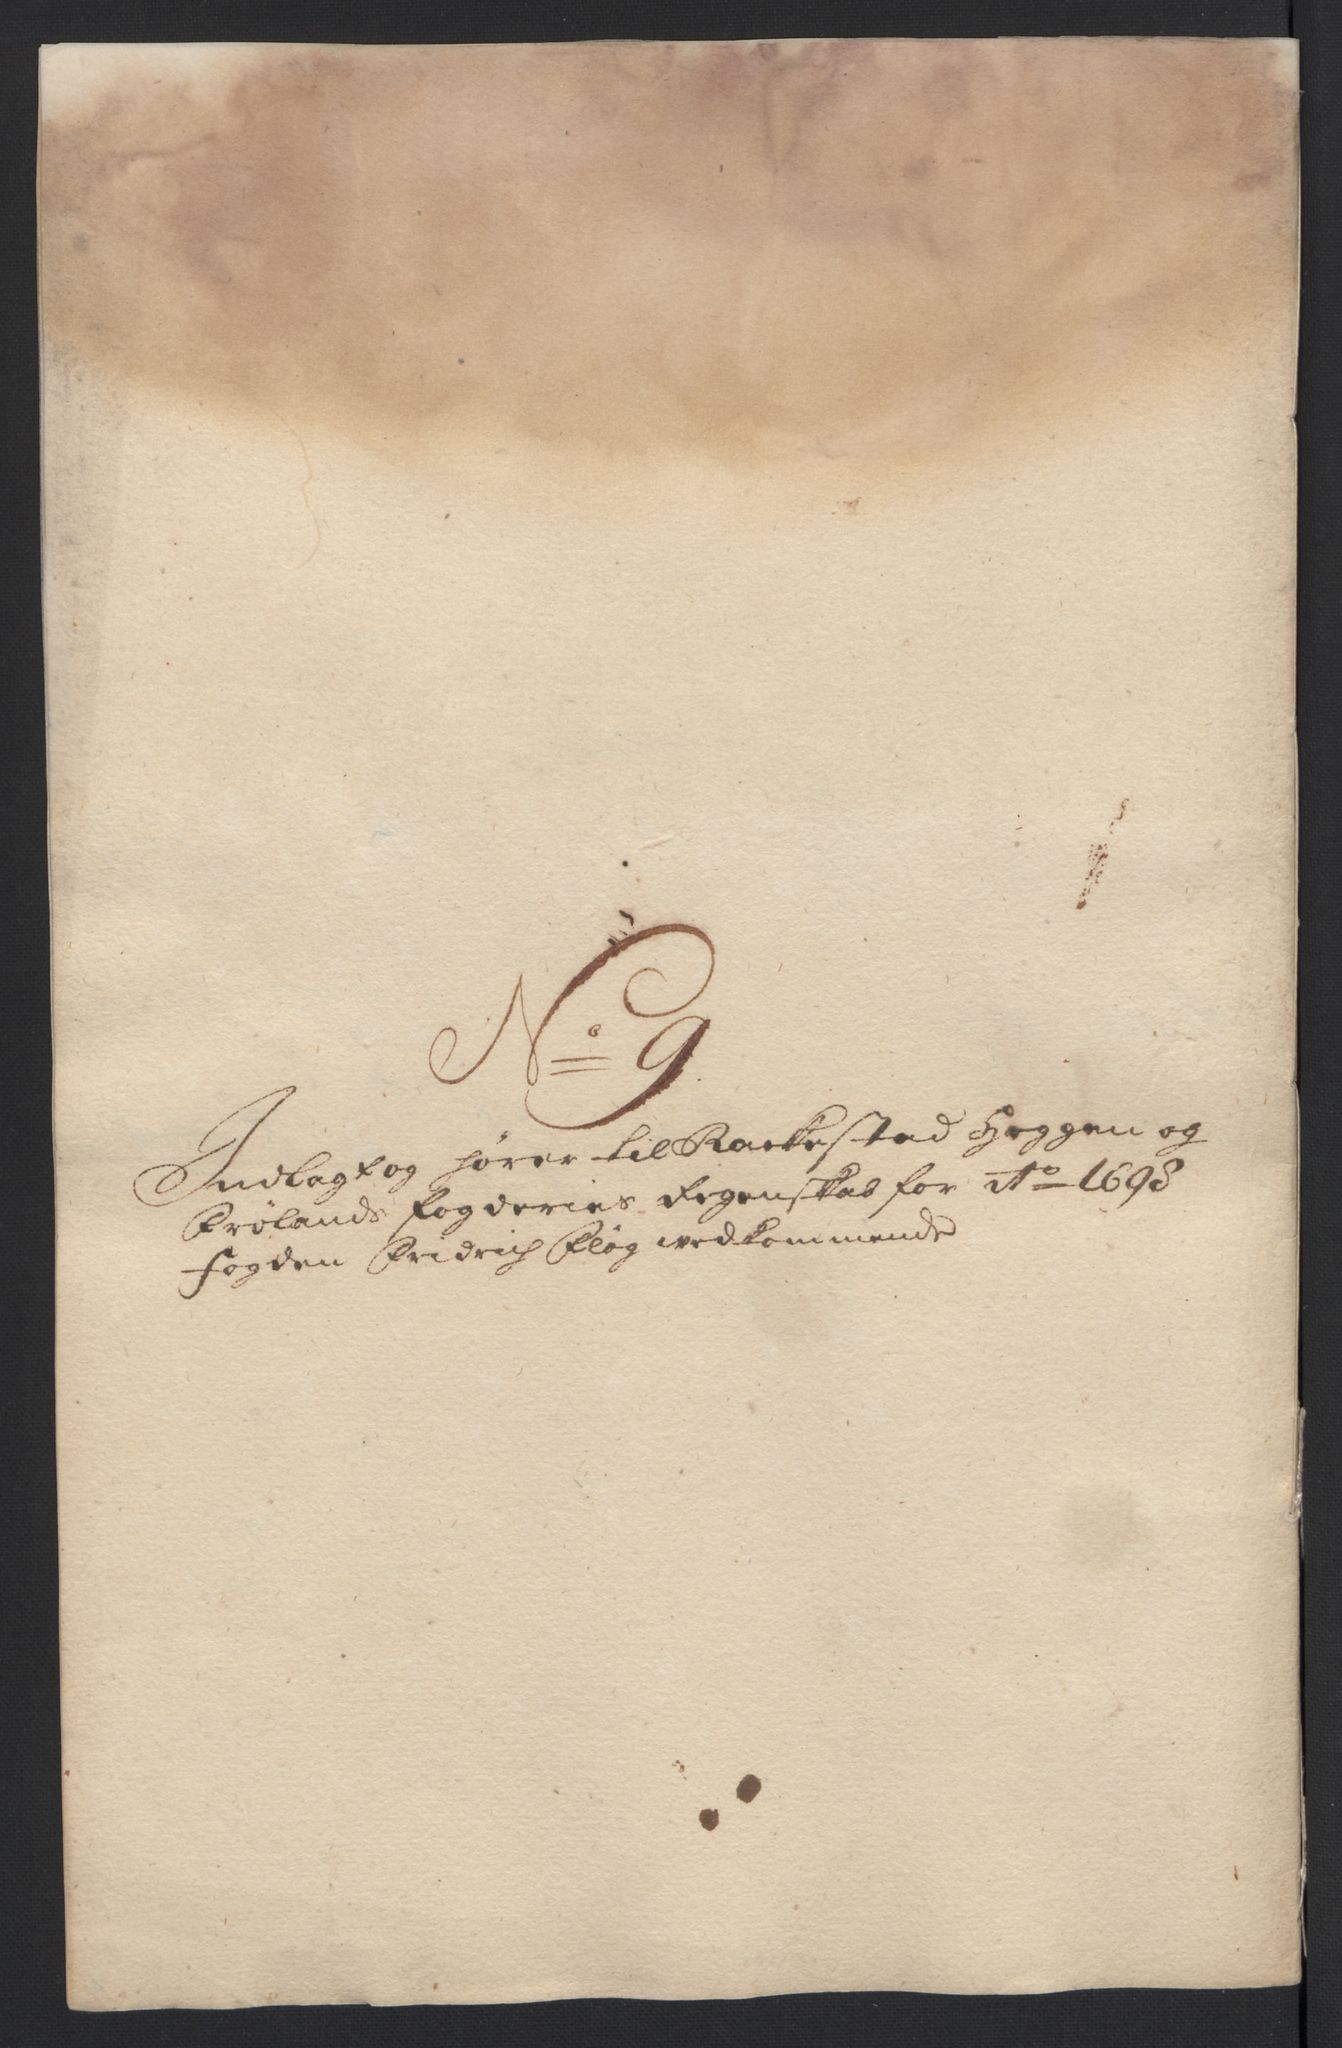 No 9
Indlagt og hører til Rackestad Heggen og
Frølands fogderies Regenskab for Ao 1698
fogden Fridrich Fløg vedkommende